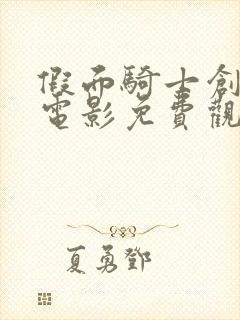 假面騎士創
電影免費觀
夏勇鄧